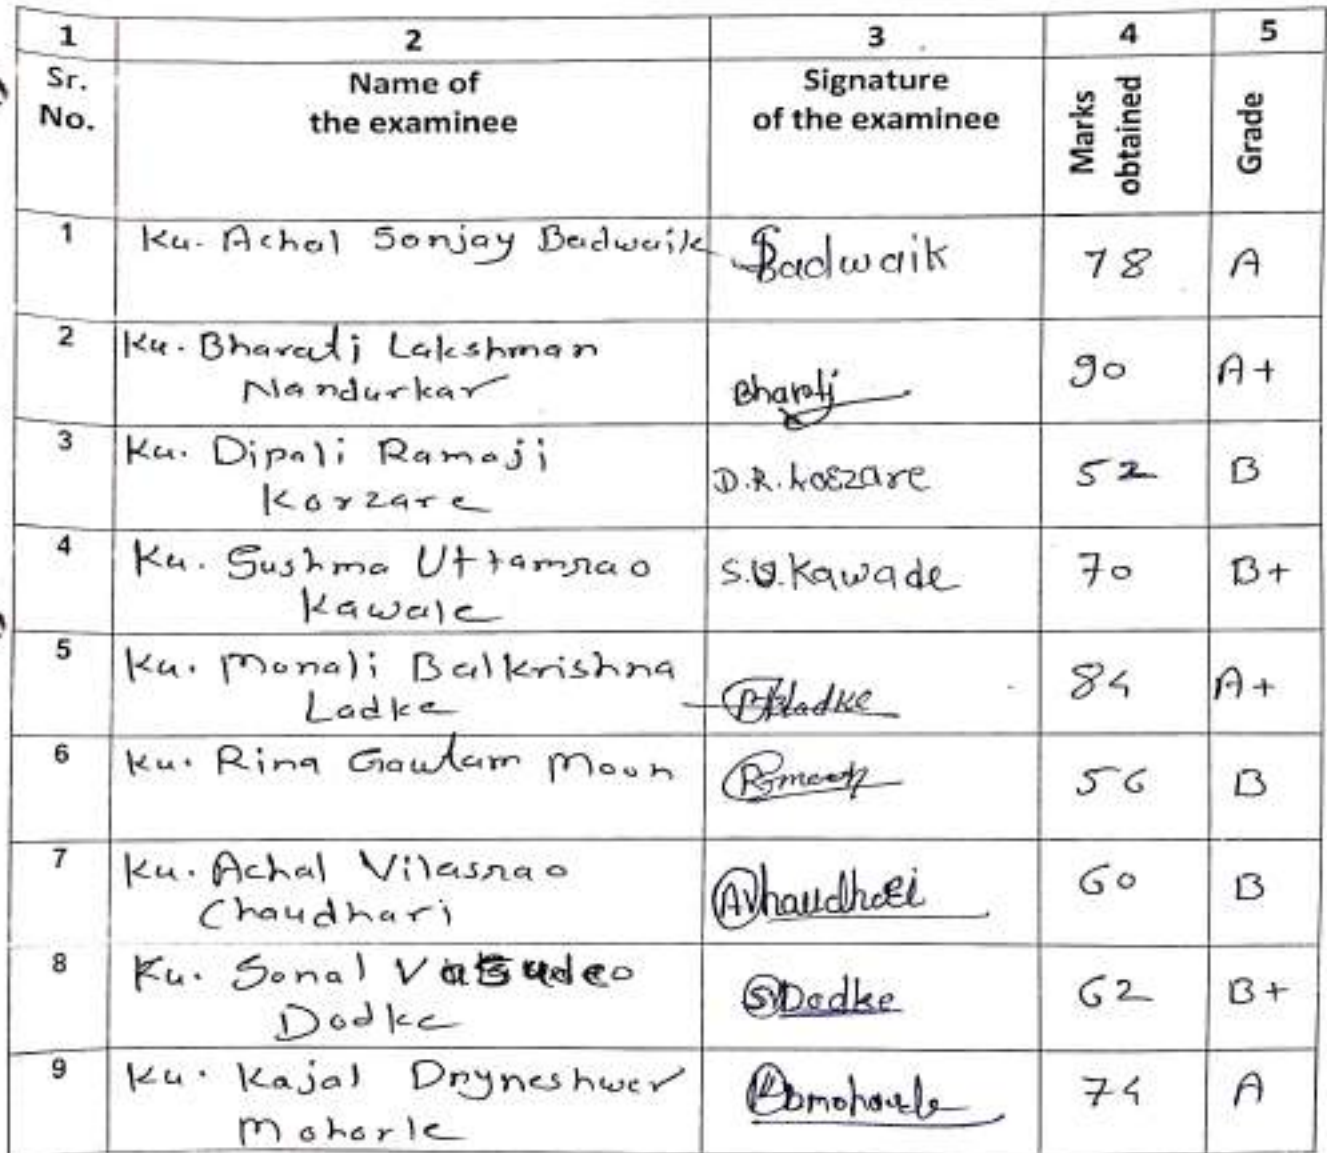 1 2 3 4 5
Sr. No. Name of the examinee Signature of the examinee Marks obtained Grade
1 Ku. Achal Sonjay Badwaik SBadwaik 78 A
2 Ku. Bharati Lakshman
Nandurkar Bharati 90 A+
3 Ku. Dipali Ramaji
Korzare D.R. Korzare 52 B
4 Ku. Sushma Uttamrao
Kawale S.U. Kawade 70 B+
5 Ku. Monali Balkrishna
Ladke Ladke 84 A+
6 Ku. Rina Gautam Moon RGmoon 56 B
7 Ku. Achal Vilasrao
Chaudhari AVhaudhari 60 B
8 Ku. Sonal Vasudeo
Dodke S Dodke 62 B+
9 Ku. Kajal Dnyneshwer
Mohorle 74 A